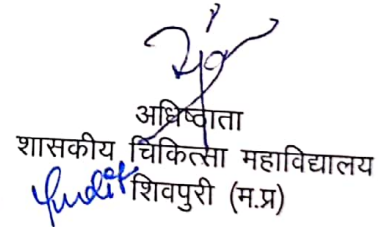 अधिष्ठाता
शासकीय चिकित्सा महाविद्यालय
शिवपुरी (म.प्र)